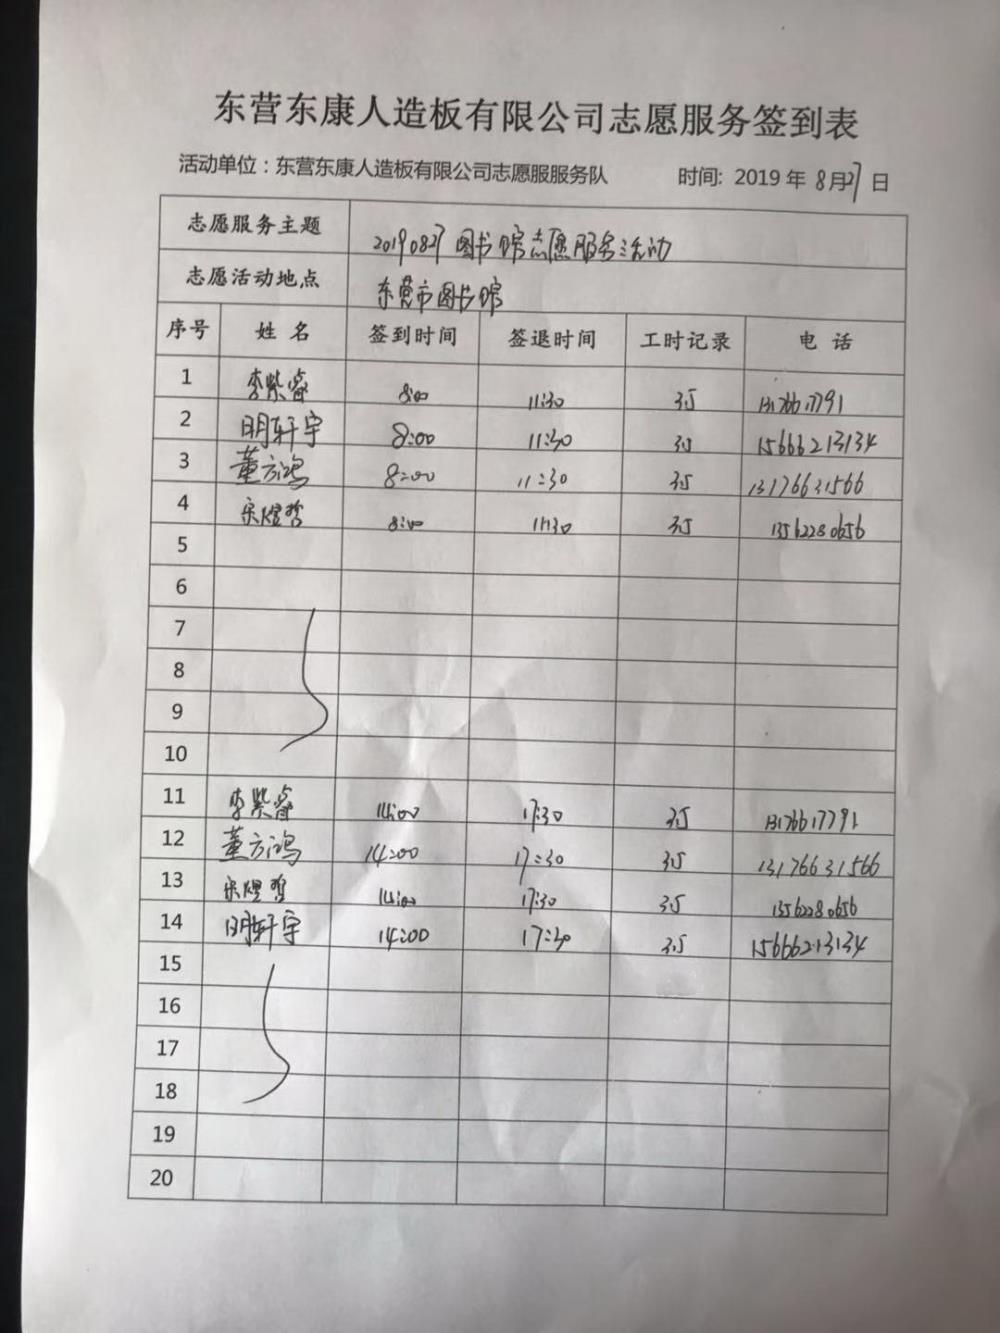 东营东康人造板有限公司志愿服务签到表
活动单位：东营东康人造板有限公司志愿服服务队 时间: 2019 年 8月27日
志愿服务主题 20190827图书馆志愿服务活动
志愿活动地点 东营市图书馆
序号 姓 名 签到时间 签退时间 工时记录 电 话
1 李紫睿 8:00 11:30 3.5 13176617791
2 明轩宇 8:00 11:30 3.5 15666213134
3 董方鸿 8:00 11:30 3.5 13176631566
4 宋煜哲 8:00 11:30 3.5 13562280656
5
6
7
8
9
10
11 李紫睿 14:00 17:30 3.5 13176617791
12 董方鸿 14:00 17:30 3.5 13176631566
13 宋煜哲 14:00 17:30 3.5 13562280656
14 明轩宇 14:00 17:30 3.5 15666213134
15
16
17
18
19
20